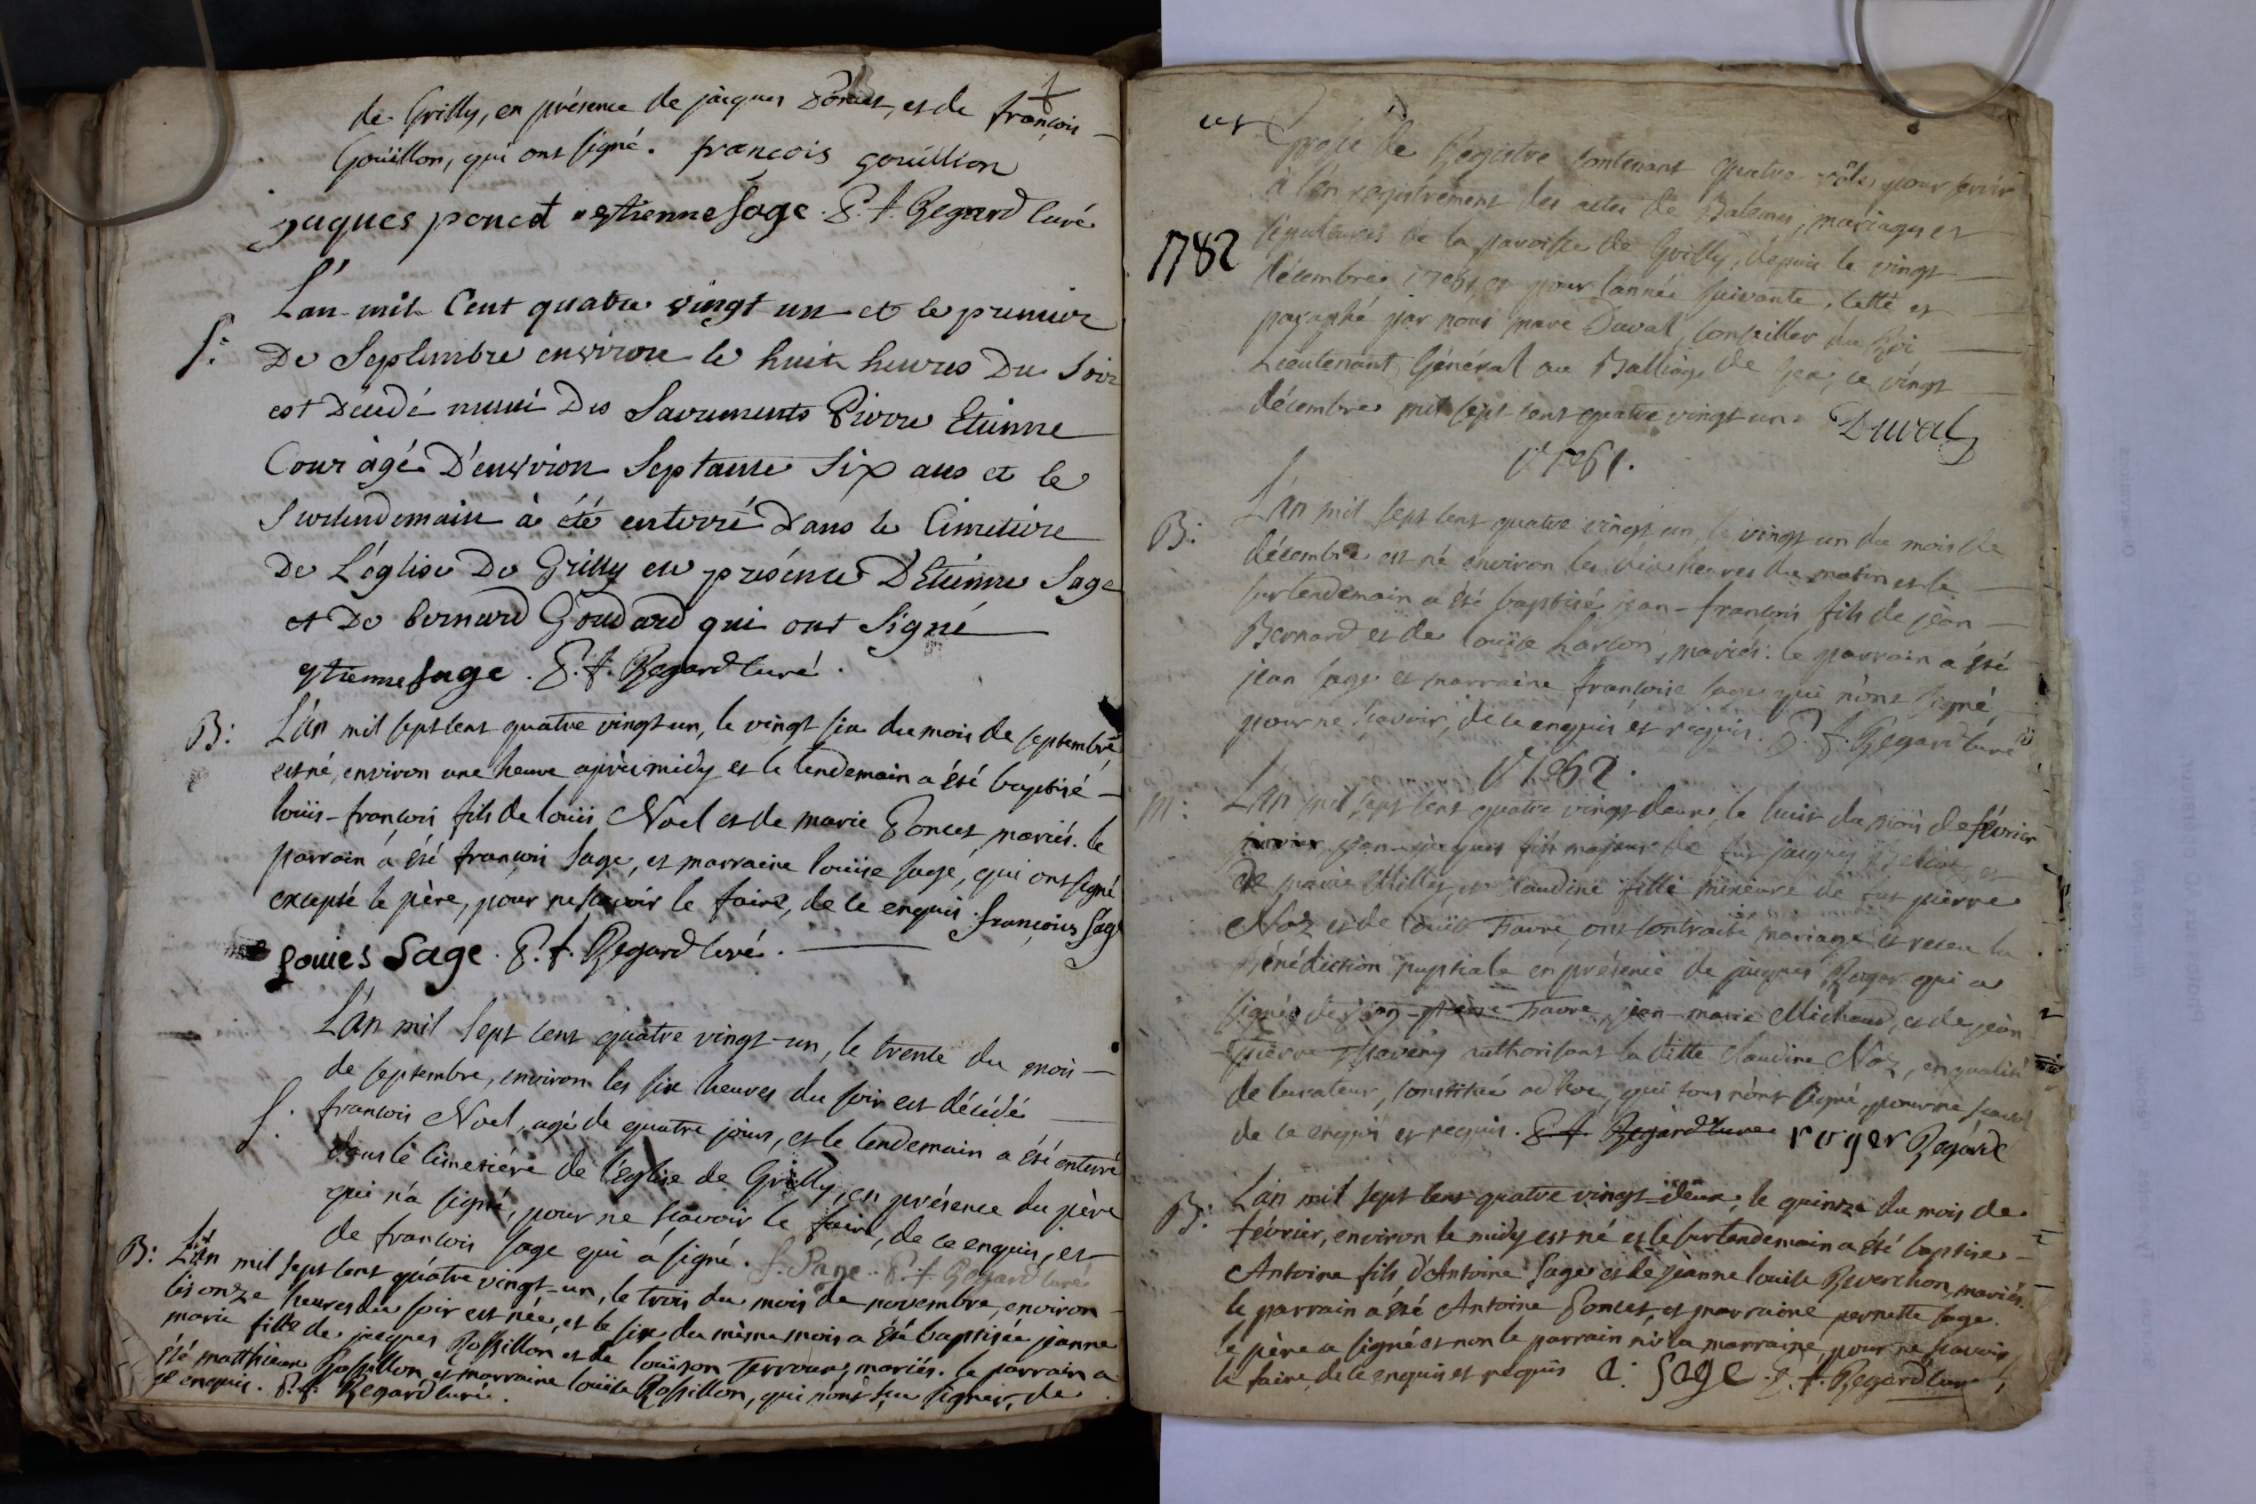 de Grilly, en présence de jâcques Poncet, et de françois
Goüillon, qui ont signé. françois gouillion
jaques poncet estienne sage. P. f. Regard curé
S:
L'an mil Cent quatre vingt un et le premier
De Septembre environ le huit heures Du Soir
est Décédé muni Des Sacrements Pierre Etienne
Cour âgé D'environ Septante Six ans et le
Surlendemain à été enterré Dans le Cimetiere
De L'église De Grilly en présence D'Etienne Sage
et De bernard Goudard qui ont Signé
estienne sage. P. f. Regard curé.
B:
L'an mil sept cent quatre vingt un, le vingt six du mois de septembre,
est né, environ une heure après midy et le lendemain a été baptisé
loüis-françois fils de loüis Noel et de marie Poncet, mariés. le
parrain a été françois sage, et marraine loüise sage, qui ont signé
excepté le père, pour ne sçavoir le faire, de ce enquis. françois sage
Louies Sage. P. f. Regard curé.
L'an mil sept cent quatre vingt-un, le trente du mois
de septembre, environ les six heures du soir est décédé
S.
françois Noel, agé de quatre jours, et le lendemain a été enterré
dans le cimetière de l'église de Grilly, en présence du père
qui n'a signé, pour ne sçavoir le faire, de ce enquis, et
de françois sage qui a signé. f. Sage. P. f. Regard curé
B: L'an mil sept cent quatre vingt-un, le trois du mois de novembre, environ
les onze heures du soir est née, et le six du même mois a été baptisée jeanne
marie fille de jacques Rossillon et de louison Terroux, mariés. le parrain a
été matthieu Rossillon et marraine loüise Rossillon, qui n'ont sçu signer, de
ce enquis. P. f. Regard curé.
1782
Registre contenant quatre rôles pour servir
à l'enregistrement des actes de Batêmes, mariages et
sépultures de la paroisse de Grilly, depuis le vingt
décembre 1781, et pour l'année suivante, cotté et
paraphé par nous marc Duval, conseiller du Roi
Lieutenant Général au Balliage de Gex, ce vingt
décembre mil sept cent quatre vingt un. Duval
1781.
B:
L'an mil sept cent quatre vingt un, le vingt un du mois de
décembre est né environ les dix heures du matin et le
surlendemain a été baptisé jean-françois fils de jean
Bernard et de loüise, mariés. le parrain a été
jean sage et marraine françoise sage qui n'ont signé
pour ne sçavoir, de ce enquis et requis. P. f. Regard curé
1782.
M:
L'an mil sept cent quatre vingt deux, le huit du mois de février
jean-jacques fils majeur de feu jacques et
de marie Millet, et claudine fille mineure de feu pierre
Noz et de loüise Favre, ont contracté mariage et receu la
bénédiction nuptiale en présence de jacques Roger qui a
signé, de jean-pierre Favre, jean-marie Michaud, et de jean
pierre authorisant la ditte claudine Noz, en qualité
de curateur, constitué ad hoc, qui tous n'ont signé, pour ne sçavoir
de ce enquis et requis. P. f. Regard curé roger Regard
B:
L'an mil sept cent quatre vingt-deux, le quinze du mois de
février, environ le midy est né et le surlendemain a été baptisé
Antoine fils d'Antoine Sage et de jeanne loüise Reverchon, mariés.
le parrain a été Antoine Poncet, et marraine pernette sage.
le père a signé et non le parrain ni la marraine, pour ne sçavoir
le faire, de ce enquis et requis a: sage P. f. Regard curé